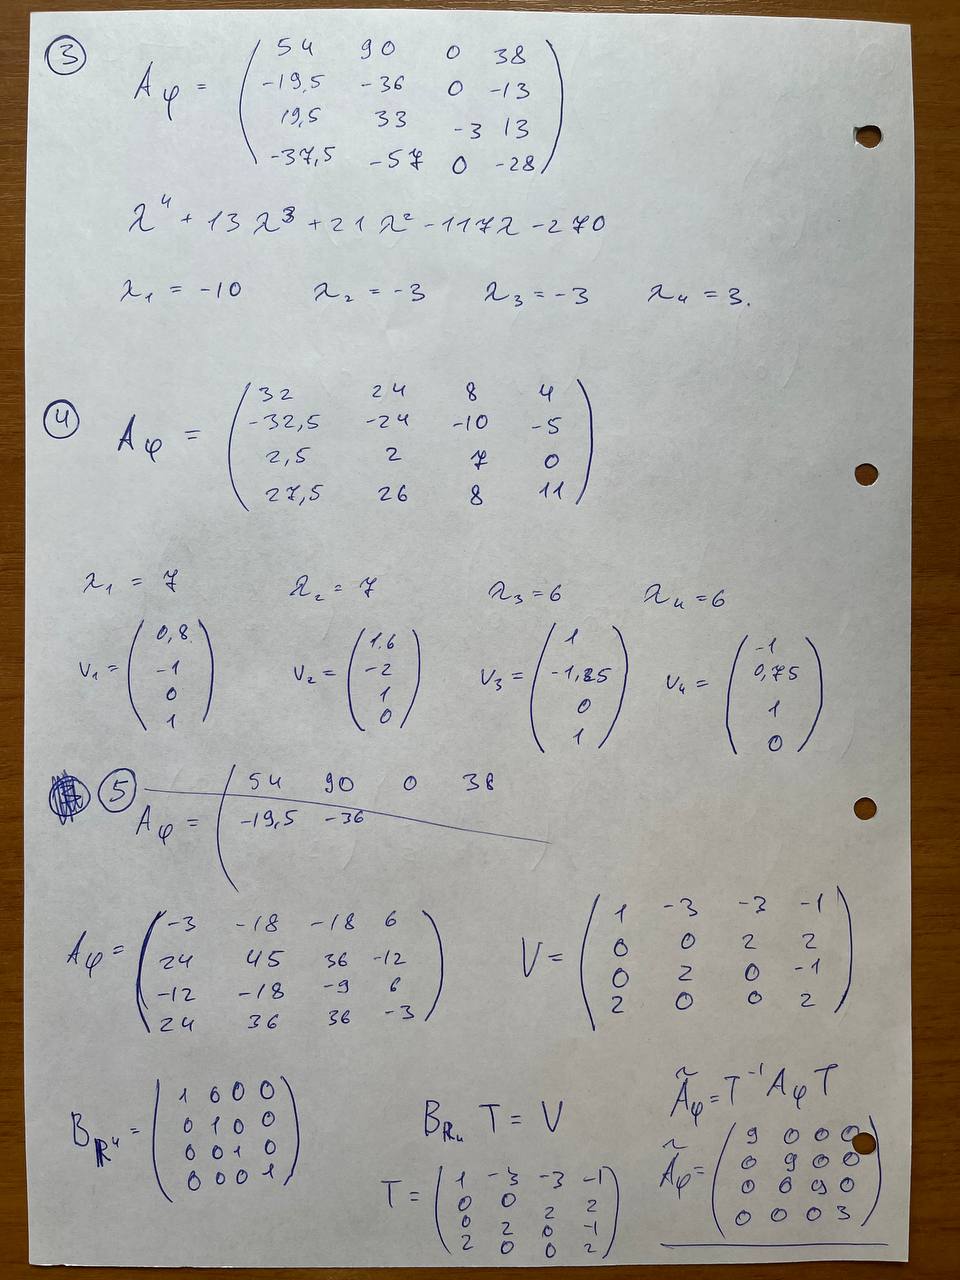 ③
A𝜑 = ( 54 90 0 38
-19,5 -36 0 -13
19,5 33 -3 13
-37,5 -57 0 -28 )
λ⁴ + 13λ³ + 21λ² - 117λ - 270
λ₁ = -10 λ₂ = -3 λ₃ = -3 λ₄ = 3.
④
A𝜑 = ( 32 24 8 4
-32,5 -24 -10 -5
2,5 2 7 0
27,5 26 8 11 )
λ₁ = 7 λ₂ = 7 λ₃ = 6 λ₄ = 6
v₁ = ( 0,8
-1
0
1 )
v₂ = ( 1.6
-2
1
0 )
v₃ = ( 1
-1,25
0
1 )
v₄ = ( -1
0,75
1
0 )
⑤
A𝜑 = ( 54 90 0 38
-19,5 -36
A𝜑 = ( -3 -18 -18 6
24 45 36 -12
-12 -18 -9 6
24 36 36 -3 )
V = ( 1 -3 -3 -1
0 0 2 2
0 2 0 -1
2 0 0 2 )
B_R⁴ = ( 1 0 0 0
0 1 0 0
0 0 1 0
0 0 0 1 )
B_R₄ T = V
T = ( 1 -3 -3 -1
0 0 2 2
0 2 0 -1
2 0 0 2 )
Ã𝜑 = T⁻¹ A𝜑 T
Ã𝜑 = ( 9 0 0 0
0 9 0 0
0 0 9 0
0 0 0 3 )